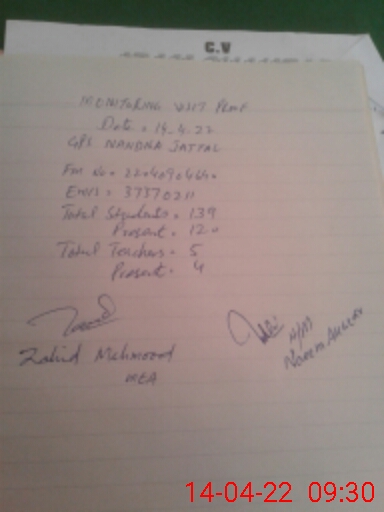 C.V
MONITORING VISIT PROF
Date = 14-4-22
GPS NANDNA JATTAL
Fm No = 2204090464
EMIS = 37370211
Total Students = 139
Present = 120
Total Teachers = 5
Present = 4
Zahid Mehmood
MEA
H/M
14-04-22 09:30